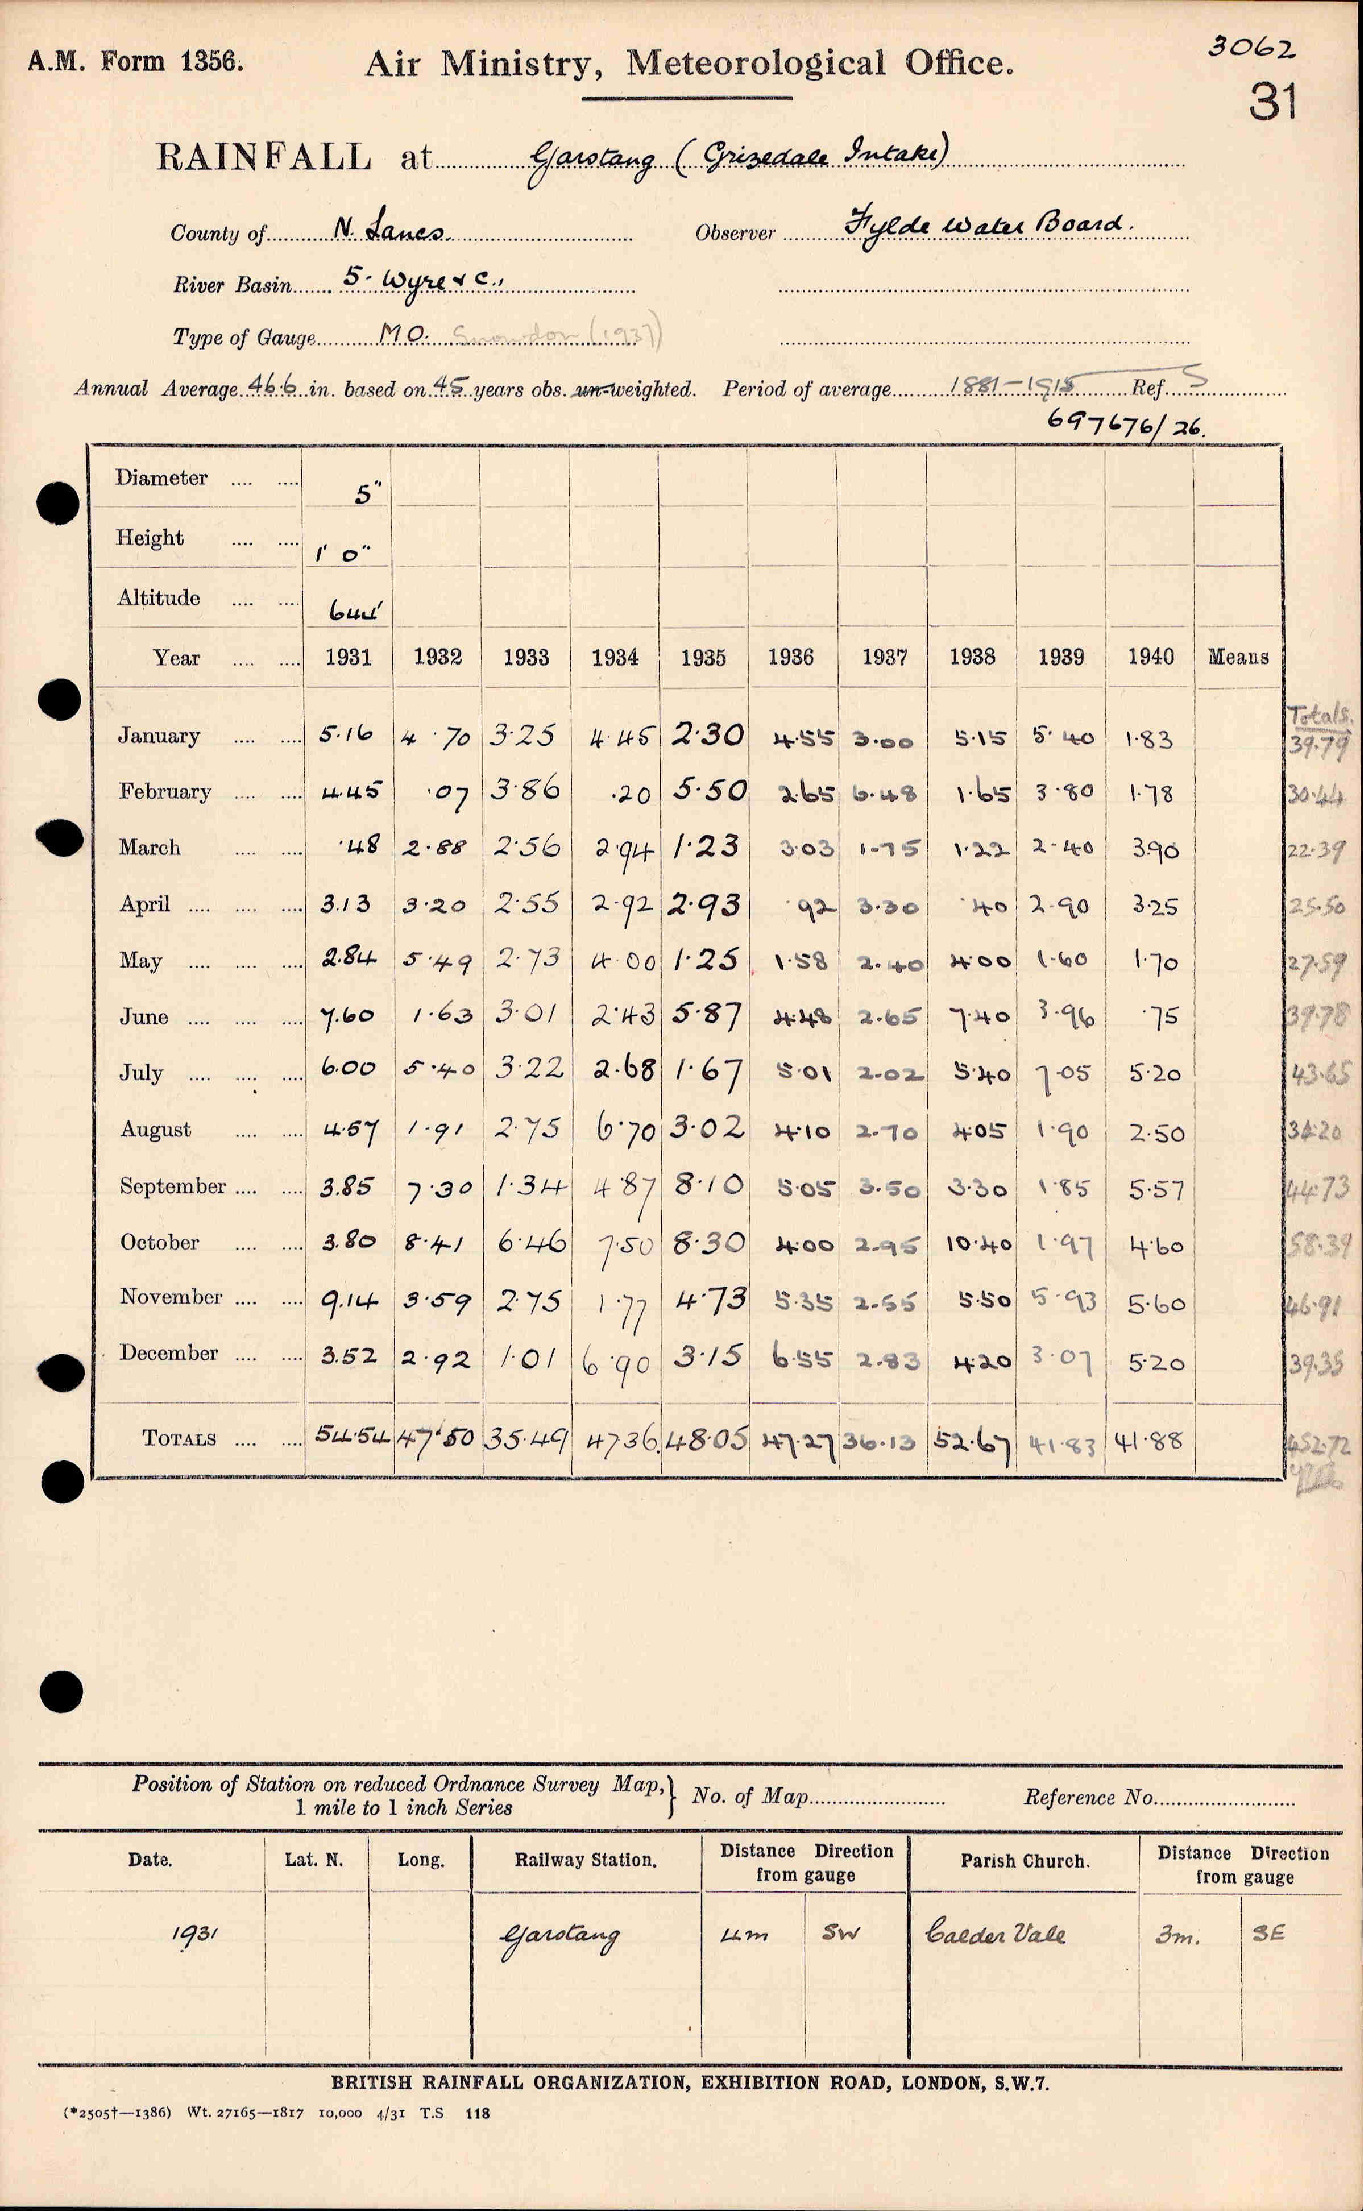 A.M. Form 1356.
Air Ministry, Meteorological Office.
3062
31
RAINFALL at Garstang (Grizedale Intake)
County of N. Lancs. Observer Fylde Water Board.
River Basin 5. Wyre & c.,
Type of Gauge M O. Snowdon (1937)
Annual Average 46.6 in. based on 45 years obs. un-weighted. Period of average 1881-1915 Ref. S
697676/26.
Diameter .... .... 5"
Height .... .... 1' 0"
Altitude .... .... 644'
Year .... .... 1931 1932 1933 1934 1935 1936 1937 1938 1939 1940 Means
Totals.
January .... .... 5.16 4.70 3.25 4.45 2.30 4.55 3.00 5.15 5.40 1.83 39.79
February .... .... 4.45 .07 3.86 .20 5.50 2.65 6.48 1.65 3.80 1.78 30.44
March .... .... .48 2.88 2.56 2.94 1.23 3.03 1.75 1.22 2.40 3.90 22.39
April .... .... .... 3.13 3.20 2.55 2.92 2.93 .92 3.30 .40 2.90 3.25 25.50
May .... .... .... 2.84 5.49 2.73 4.00 1.25 1.58 2.40 4.00 1.60 1.70 27.59
June .... .... .... 7.60 1.63 3.01 2.43 5.87 4.48 2.65 7.40 3.96 .75 39.78
July .... .... .... 6.00 5.40 3.22 2.68 1.67 5.01 2.02 5.40 7.05 5.20 43.65
August .... .... 4.57 1.91 2.75 6.70 3.02 4.10 2.70 4.05 1.90 2.50 34.20
September .... .... 3.85 7.30 1.34 4.87 8.10 5.05 3.50 3.30 1.85 5.57 44.73
October .... .... 3.80 8.41 6.46 7.50 8.30 4.00 2.95 10.40 1.97 4.60 58.39
November .... .... 9.14 3.59 2.75 1.77 4.73 5.35 2.55 5.50 5.93 5.60 46.91
December .... .... 3.52 2.92 1.01 6.90 3.15 6.55 2.83 4.20 3.07 5.20 39.35
TOTALS .... .... 54.54 47.50 35.49 47.36 48.05 47.27 36.13 52.67 41.83 41.88 452.72
Position of Station on reduced Ordnance Survey Map,} No. of Map Reference No.
1 mile to 1 inch Series
Date. Lat. N. Long. Railway Station. Distance Direction from gauge Parish Church. Distance Direction from gauge
1931 Garstang 4m SW Calder Vale 3m. SE
BRITISH RAINFALL ORGANIZATION, EXHIBITION ROAD, LONDON, S.W.7.
(*2505†—1386) Wt. 27165—1817 10,000 4/31 T.S 118